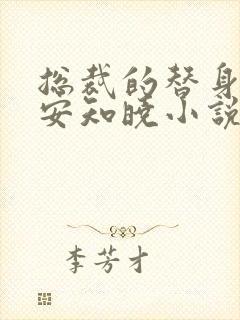 总裁的替身
安知晓小说
李芳才